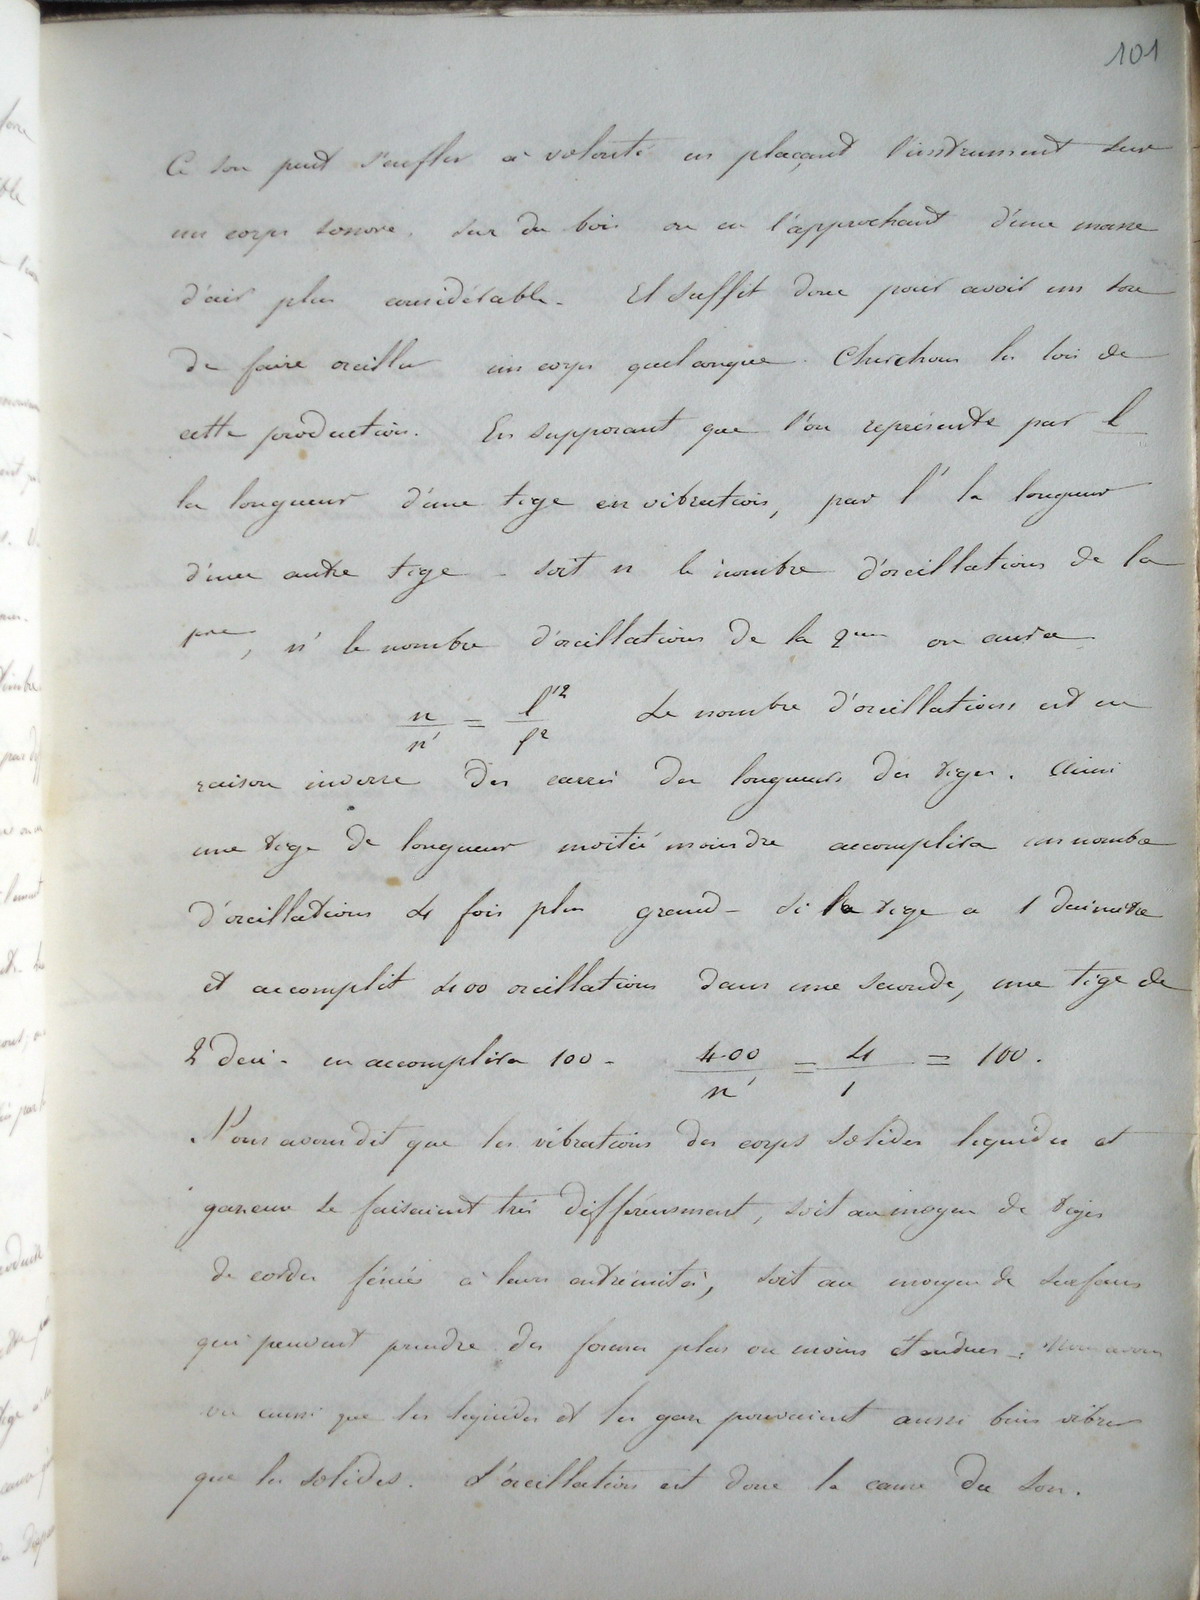 101
Ce son peut s'enfler à volonté en plaçant l'instrument sur
un corps sonore, sur du bois ou en l'approchant d'une masse
d'air plus considérable. Il suffit donc pour avoir un son
de faire osciller un corps quelconque. Cherchons les lois de
cette production. En supposant que l'on représente par l
la longueur d'une tige en vibration, par l' la longueur
d'une autre tige - soit n le nombre d'oscillations de la
pre, n' le nombre d'oscillations de la 2me on aura
n/n' = l'²/l² Le nombre d'oscillations est en
raison inverse des carrés des longueurs des tiges. Ainsi
une tige de longueur moitié moindre accomplira un nombre
d'oscillations 4 fois plus grand - Si la tige a 1 decimètre
et accomplit 400 oscillations dans une seconde, une tige de
2 deci - en accomplira 100 - 400/n' = 4/1 = 100.
Nous avons dit que les vibrations des corps solides liquides et
gazeux se faisaient très différemment, soit au moyen de tiges
de cordes fixées à leurs extrémités, soit au moyen de surfaces
qui peuvent prendre des formes plus ou moins étendues. Nous avons
vu aussi que les liquides et les gaz pouvaient aussi bien vibrer
que les solides. L'oscillation est donc la cause du son.